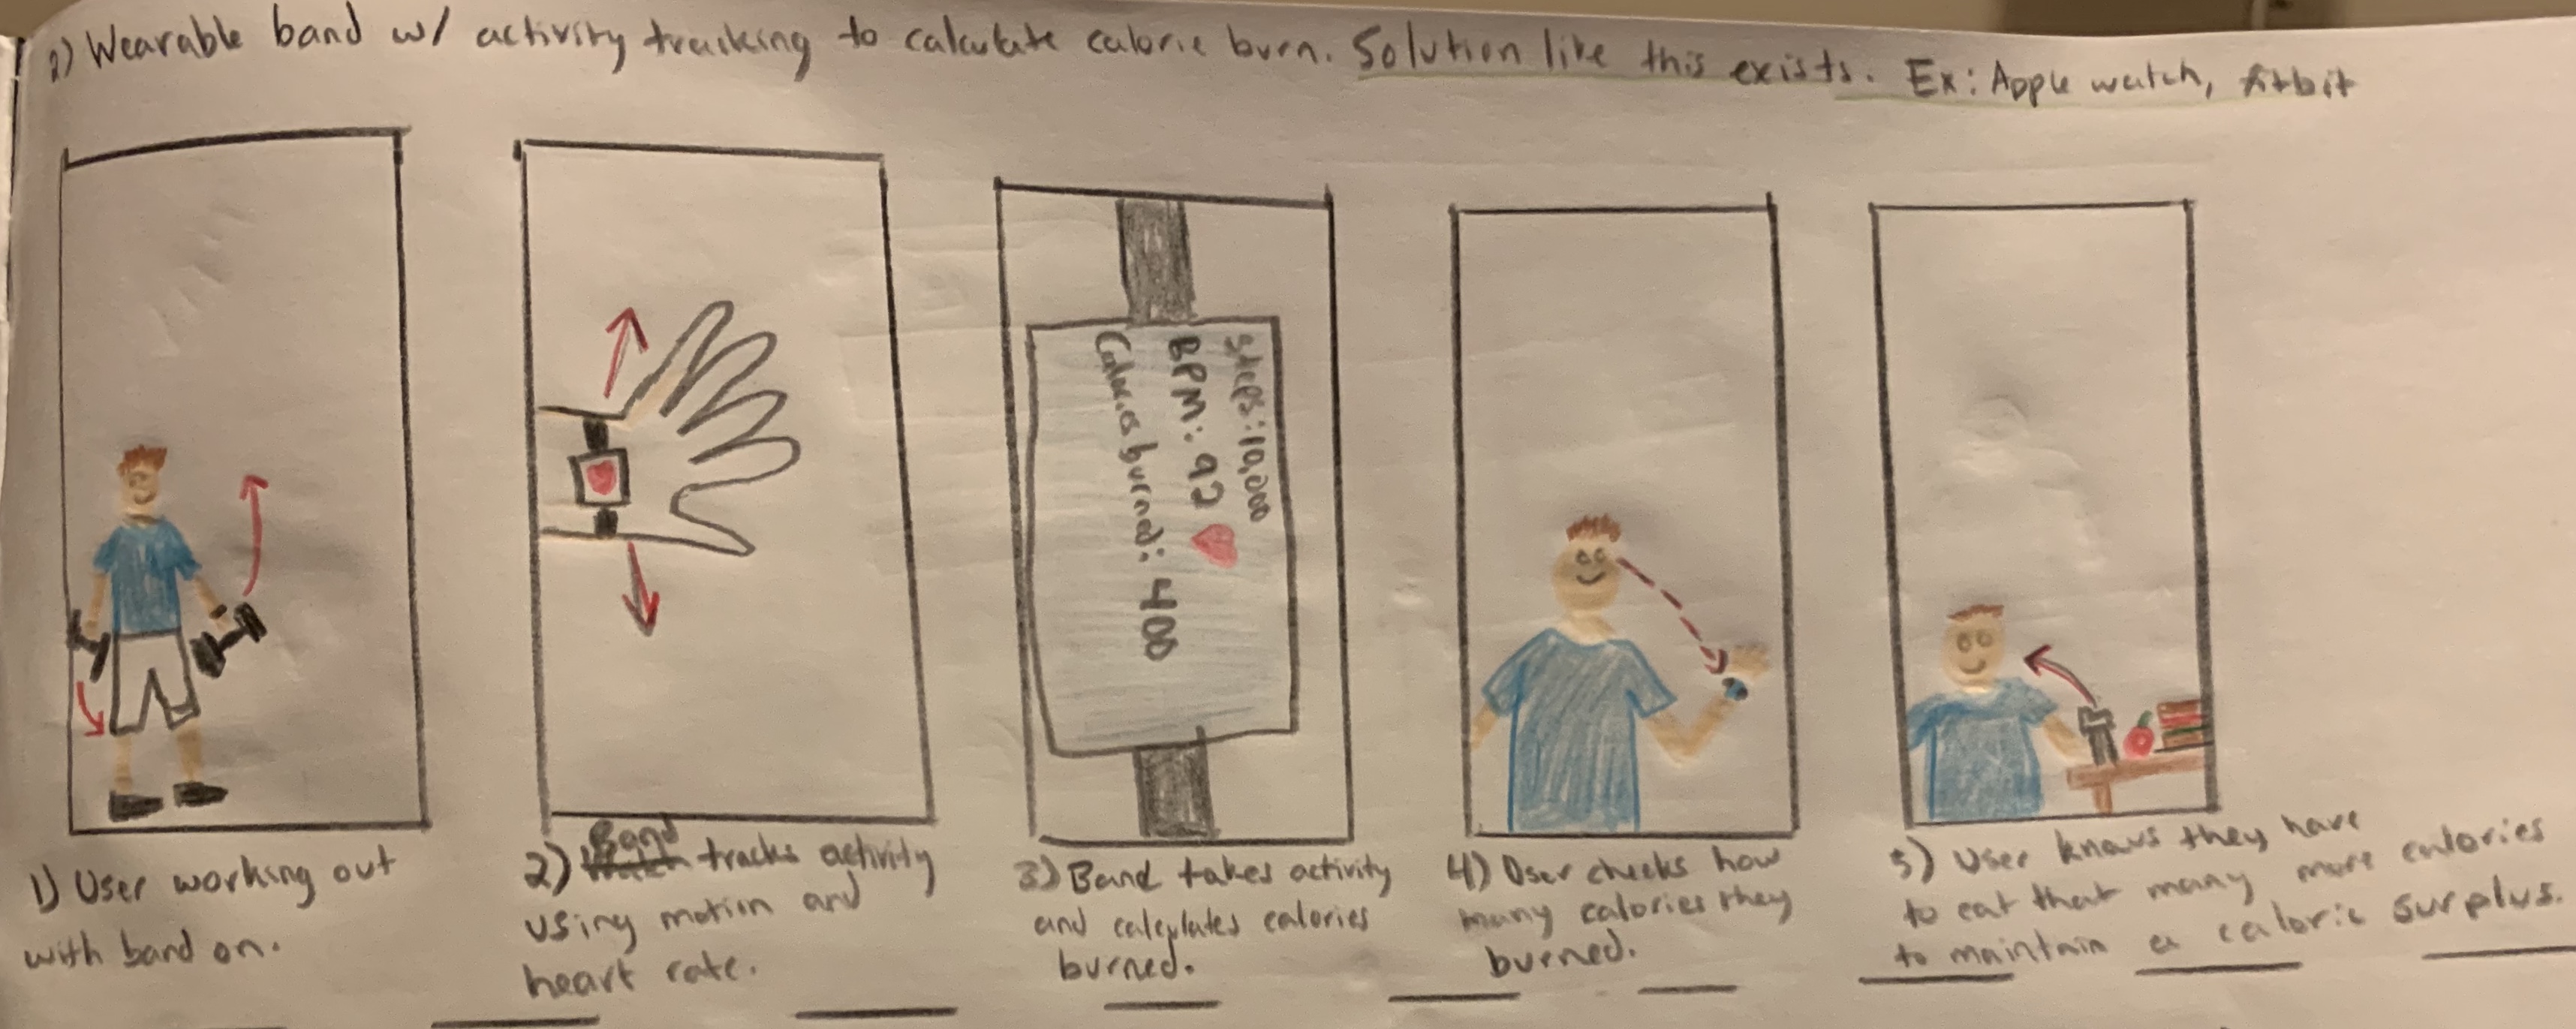 2) Wearable band w/ activity tracking to calculate calorie burn. Solution like this exists. Ex: Apple watch, fitbit
Steps: 10,000
BPM: 92
Calories burned: 400
1) User working out
with band on.
2) Band tracks activity
using motion and
heart rate.
3) Band takes activity
and calculates calories
burned.
4) User checks how
many calories they
burned.
5) User knows they have
to eat that many more calories
to maintain a caloric surplus.